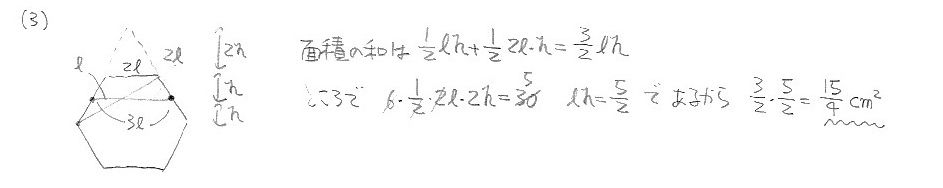 (3)
l 2l 2l 2h
h
3l h
面積の和は 1/2 lh + 1/2 2l・h = 3/2 lh
ところで 6・1/2・2l・2h = 30 5 lh = 5/2 であるから 3/2・5/2 = 15/4 cm²